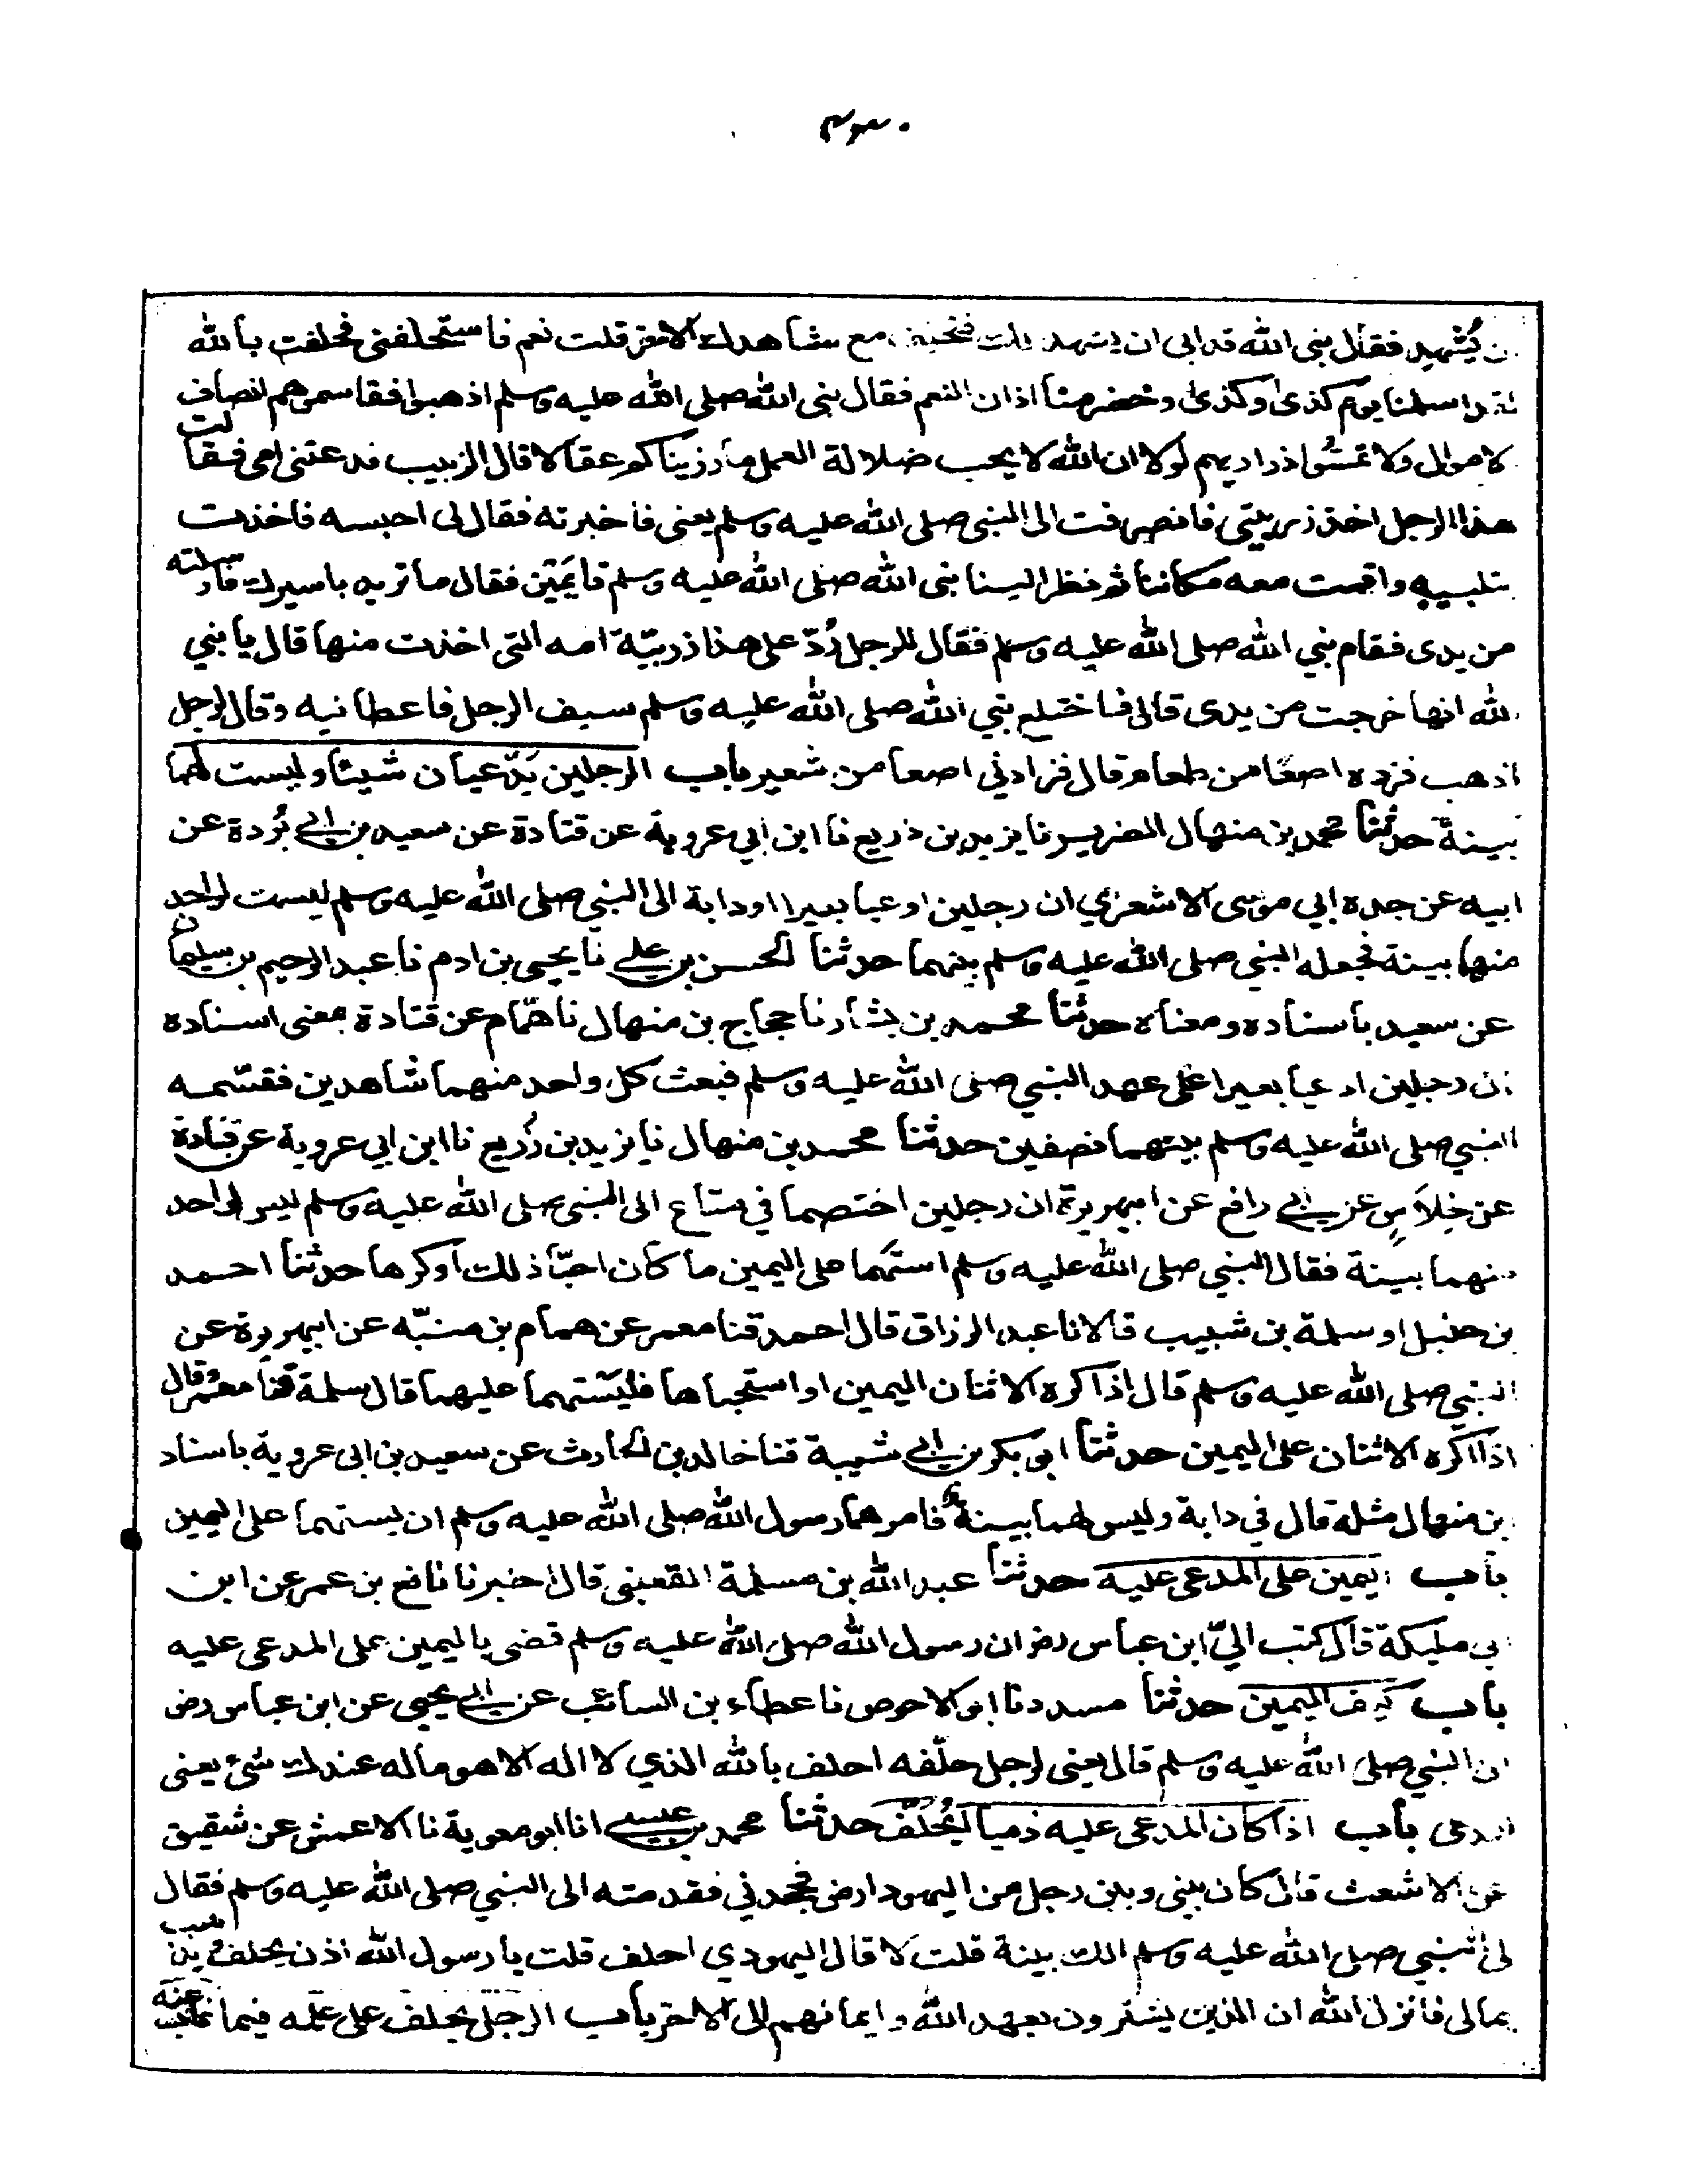 ن يُشهد فقال نبي الله قد ابى ان يشهد لك فتحلف مع شاهدك الاخر قلت نعم فاستحلفني فحلفت بالله
لقد اسلمنا يوم كذى وكذى وخضرمنا اذان النعم فقال نبي الله صلى الله عليه وسلم اذهبوا فقاسموهم انصاف
لاموال ولا تمسّوا ذراريهم لولا ان الله لا يحب ضلالة العمل ما رزيناكم عقالا قال الزبيب فدعتني امي فقالت
هذا الرجل اخذ زربيتي فانصرفت الى النبي صلى الله عليه وسلم يعني فاخبرته فقال لي احبسه فاخذت
بتلبيبه واقمت معه مكاننا ثم نظر الينا نبي الله صلى الله عليه وسلم قايمَين فقال ما تريد باسيرك فارسلته
من يدى فقام نبي الله صلى الله عليه وسلم فقال للرجل رُدّ على هذا زربيّة امه التي اخذت منها قال يا نبي
لله انها خرجت من يدى قال فاختلع نبي الله صلى الله عليه وسلم سيف الرجل فاعطانيه وقال للرجل
اذهب فزده اصعًا من طعام قال فزادني اصعا من شعير باب الرجلين يدّعيان شيئا وليست لهما
بينة حدثنا محمد بن منهال الضرير نا يزيد بن زريع نا ابن ابي عروبة عن قتادة عن سعيد بن ابي بُردة عن
ابيه عن جده ابي موسى الاشعري ان رجلين ادعيا بعيرا او دابة الى النبي صلى الله عليه وسلم ليست لواحد
منهما بينة فجعله النبي صلى الله عليه وسلم بينهما حدثنا الحسن بن علي نا يحيى بن ادم نا عبد الرحيم بن سليمان
عن سعيد باسناده ومعناه حدثنا محمد بن بشار نا حجاج بن منهال نا همّام عن قتادة بمعنى اسناده
ان رجلين ادعيا بعيرا على عهد النبي صلى الله عليه وسلم فبعث كل واحد منهما شاهدين فقسّمه
النبي صلى الله عليه وسلم بينهما نصفين حدثنا محمد بن منهال نا يزيد بن زُريع نا ابن ابي عروبة عن قتادة
عن خِلاسٍ عن ابي رافع عن ابيهريرة ان رجلين اختصما في متاع الى النبي صلى الله عليه وسلم ليس لواحد
منهما بينة فقال النبي صلى الله عليه وسلم استهما على اليمين ما كان احبّا ذلك اوكرها حدثنا احمد
بن حنبل او سلمة بن شبيب قالا نا عبد الرزاق قال احمد قنا معمر عن همام بن منبّه عن ابيهريرة عن
النبي صلى الله عليه وسلم قال اذا كره الاثنان اليمين او استحباها فليَستهما عليهما قال سلمة قنا معمر وقال
اذا اكره الاثنان على اليمين حدثنا ابو بكر بن ابي شيبة قنا خالد بن الحارث عن سعيد بن ابى عروبة باسناد
بن منهال مثله قال في دابة وليس لهما بينة فامرهما رسول الله صلى الله عليه وسلم ان يستهما على اليمين
باب اليمين على المدعى عليه حدثنا عبد الله بن مسلمة القعنبى قال اخبرنا نافع بن عمر عن ابن
ابي مليكة قال كتب اليّ ابن عباس رض ان رسول الله صلى الله عليه وسلم قضى باليمين على المدعى عليه
باب كيف اليمين حدثنا مسدد نا ابو الاحوص نا عطاء بن السائب عن ابي يحيى عن ابن عباس رض
ان النبي صلى الله عليه وسلم قال يعنى لرجل حلّفه احلف بالله الذي لا اله الا هو ما له عندك شئ يعنى
المدعى باب اذا كان المدعى عليه ذميا ايُحَلَّف حدثنا محمد بن عيسى انا ابو معوية نا الاعمش عن شقيق
عن الاشعث قال كان بيني وبين رجل من اليهود ارض فجحدني فقدمته الى النبي صلى الله عليه وسلم فقال
لى النبي صلى الله عليه وسلم الك بينة قلت لا قال لليهودي احلف قلت يا رسول الله اذن يحلف ويذهب
بمالى فانزل الله ان الذين يشترون بعهد الله وايمانهم الى الاخر باب الرجل يحلف على علمه فيما غاب عنه